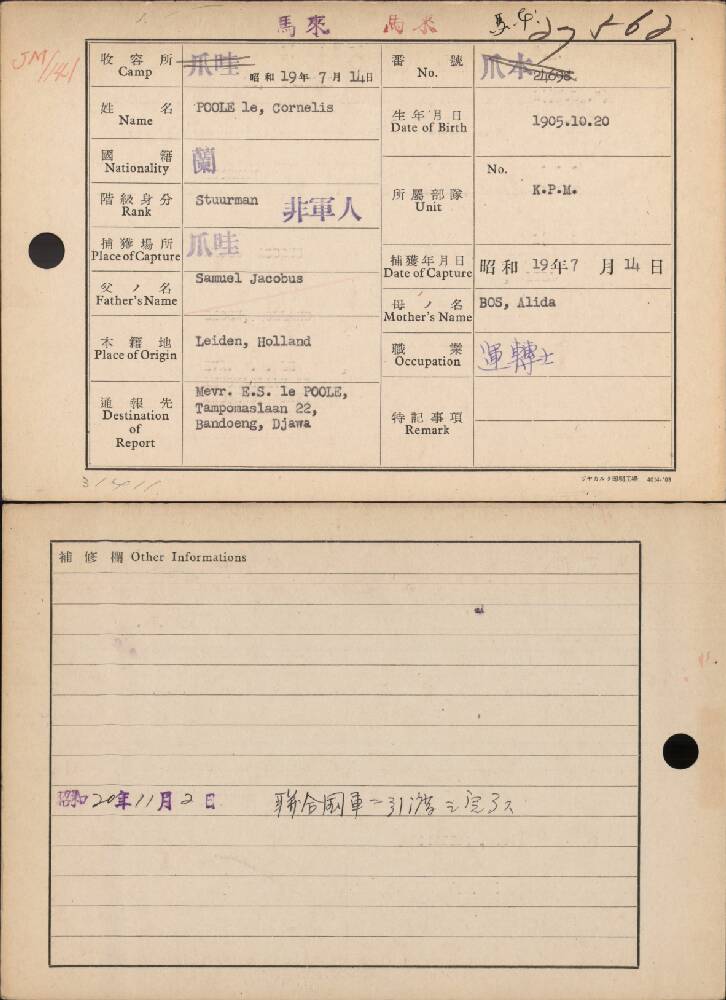 馬來 馬来 27562
JM/141
收容所 Camp 爪哇 昭和19年7月14日 番號 No. 爪本 24696
姓名 Name POOLE le, Cornelis 生年月日 Date of Birth 1905.10.20
國籍 Nationality 蘭
階級身分 Rank Stuurman 非軍人 所屬部隊 Unit No. K.P.M.
捕獲場所 Place of Capture 爪哇 捕獲年月日 Date of Capture 昭和19年7月14日
父ノ名 Father's Name Samuel Jacobus 母ノ名 Mother's Name BOS, Alida
本籍地 Place of Origin Leiden, Holland 職業 Occupation 運轉士
通報先 Destination of Report Mevr. E.S. le POOLE,
Tampomaslaan 22,
Bandoeng, Djawa
特記事項 Remark
31411
ジヤカルタ印刷工場
補修欄 Other Informations
昭和20年11月2日 聯合国軍ニ引渡シ完了ス